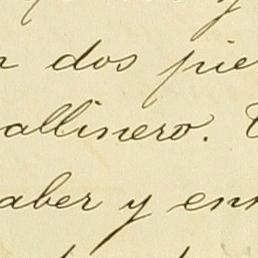 dos pie
allinero.
aber y en